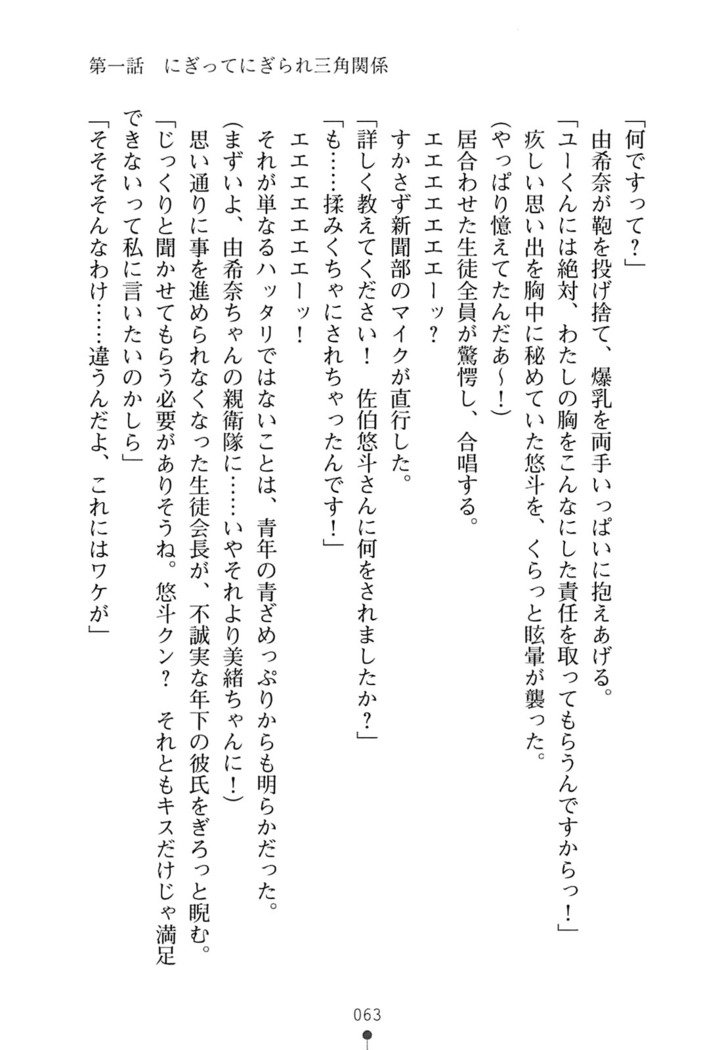 第一話　にぎってにぎられ三角関係
「何ですって？」
　由希奈が鞄を投げ捨て、爆乳を両手いっぱいに抱えあげる。
「ユーくんには絶対、わたしの胸をこんなにした責任を取ってもらうんですからっ！」
　疚しい思い出を胸中に秘めていた悠斗を、くらっと眩暈が襲った。
（やっぱり憶えてたんだぁ～！）
　居合わせた生徒全員が驚愕し、合唱する。
　エエエエエエエーッ？
　すかさず新聞部のマイクが直行した。
「詳しく教えてください！　佐伯悠斗さんに何をされましたか？」
「も……揉みくちゃにされちゃったんです！」
　エエエエエエエーッ！
　それが単なるハッタリではないことは、青年の青ざめっぷりからも明らかだった。
（まずいよ、由希奈ちゃんの親衛隊に……いやそれより美緒ちゃんに！）
　思い通りに事を進められなくなった生徒会長が、不誠実な年下の彼氏をぎろっと睨む。
「じっくりと聞かせてもらう必要がありそうね。悠斗クン？　それともキスだけじゃ満足
できないって私に言いたいのかしら」
「そそそそんなわけ……違うんだよ、これにはワケが」
063